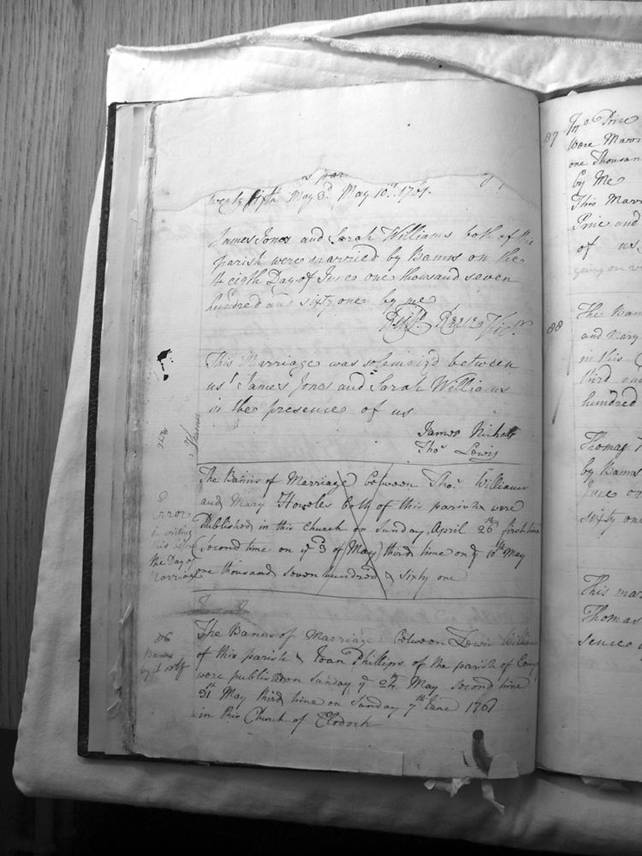 twenty fifth May 3d May 10th 1761.
James Jones and Sarah Williams both of this
parish were married by Banns on the
Eigth Day of June one thousand seven
hundred and sixty one by me
This Marriage was solemnized between
us James Jones and Sarah Williams
in the presence of us
James Nicholl
Thos Lewis
The Banns of Marriage between Thos William
and Mary Howles both of this parish were
Published in this church on Sunday April 26th first time
second time on ye 3 of May third time on ye 10th May
one thousand seven hundred & sixty one
Error
in writing
the Day of
Marriage
The Banns of Marriage between Lewis William
of this parish & Joan Phillips of the parish of
were publisd on Sunday ye 24 May second time
31st May third time on Sunday 7th June 1761
in this Church of Clodock
86
Banns
by itself
87
were Marri
one Thousan
by Me
This Marri
Price and
of us
88
The Bann
and Mary
in this C
third on
hundred
Thomas
by Banns
June o
sixty one
This mar
Thomas
sence o